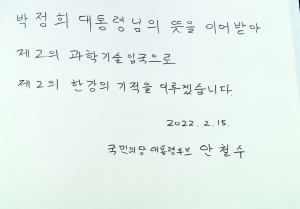 박정희 대통령님의 뜻을 이어받아
제2의 과학기술입국으로
제2의 한강의 기적을 이루겠습니다.
2022. 2. 15.
국민의당 대통령후보 안철수